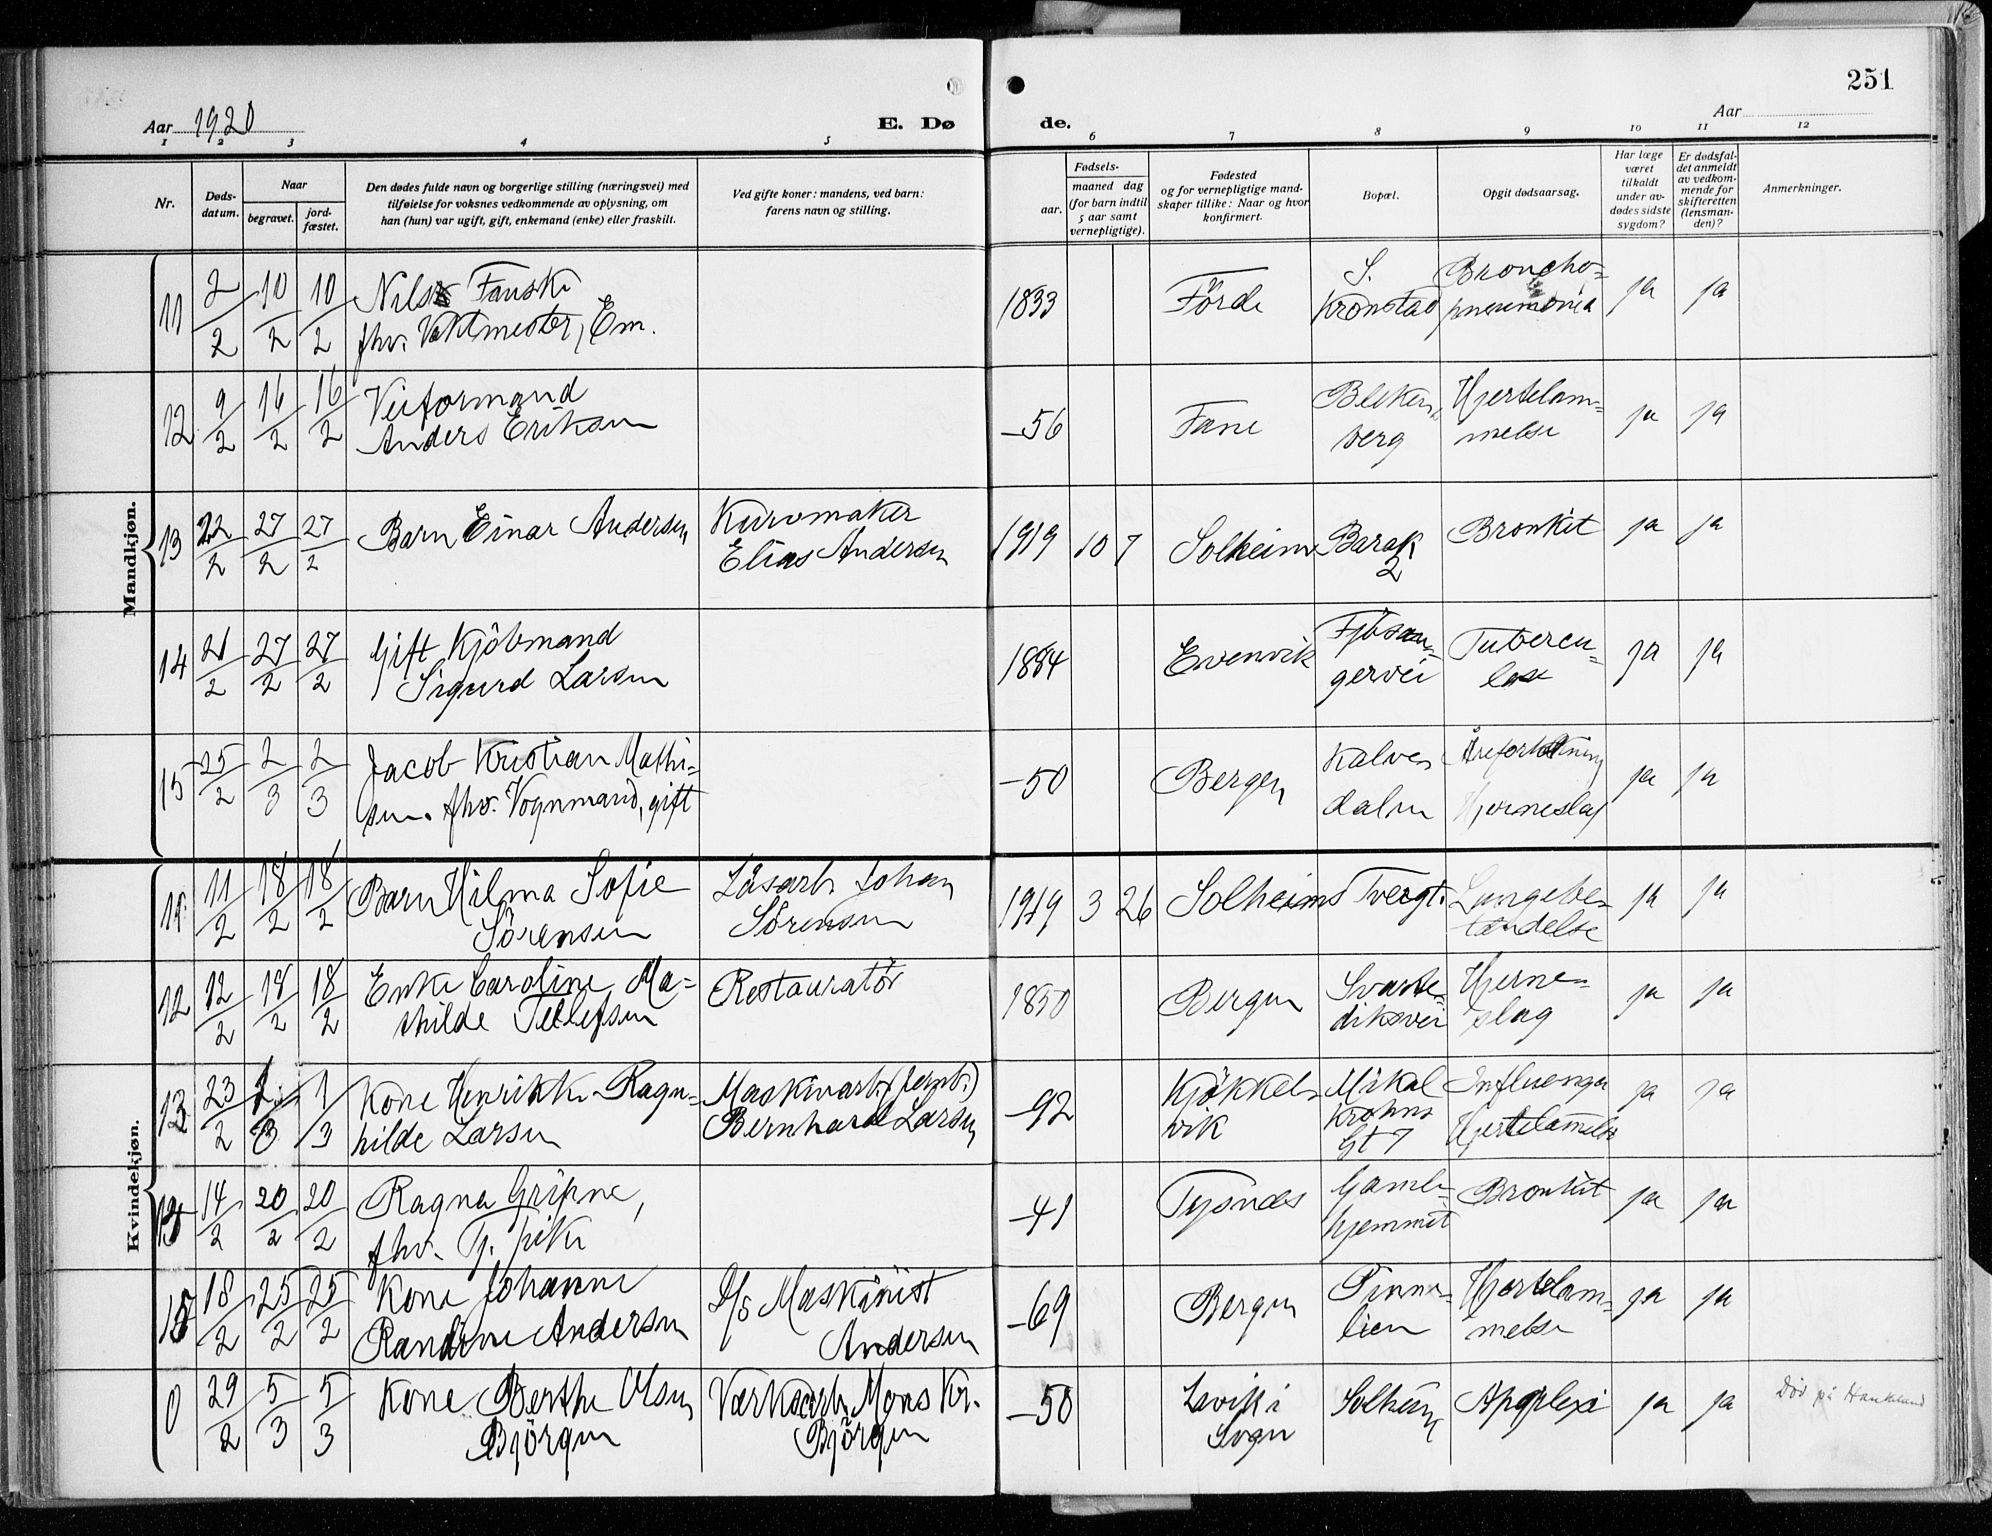 251
Aar 1920
E. Dø
de.
Aar
1 2 3 4 5 6 7 8 9 10 11 12
Nr.
Døds-
datum.
Naar
begravet.
jord-
fæstet.
Den dødes fulde navn og borgerlige stilling (næringsvei) med
tilføielse for voksnes vedkommende av oplysning, om
han (hun) var ugift, gift, enkemand (enke) eller fraskilt.
Ved gifte koner: mandens, ved barn:
farens navn og stilling.
Fødsels-
aar.
maaned dag
(for barn indtil
5 aar samt
vernepligtige).
Fødested
og for vernepligtige mand-
skaper tillike: Naar og hvor
konfirmert.
Bopæl.
Opgit dødsaarsag.
Har læge
været
tilkaldt
under av-
dødes sidste
sygdom?
Er dødsfal-
det anmeldt
av vedkom-
mende for
skifteretten
(lensman-
den)?
Anmerkninger.
Mandkjøn.
11 2/2 10/2 10/2 Nils Fauske
fhv. Vaktmester, Em.
1833 Förde S.
Kronstad Broncho-
pneumonia ja ja
12 9/2 16/2 16/2 Veiformand
Anders Eriksen
-56 Fane Bleken-
berg Hjertelam-
melse ja ja
13 22/2 27/2 27/2 Barn Einar Andersen
Kurvmaker
Elias Andersen
1919 10 7 Solheim Barak
2 Bronkit ja ja
14 21/2 27/2 27/2 Gift Kjöbmand
Sigurd Larsen
1884 Evenvik Fjösan-
gervei Tubercu-
lose ja ja
15 25/2 2/3 2/3 Jacob Kristian Mathi-
sen. fhv. Vognmand, gift
-50 Bergen Kalve-
dalen Åreforkalkning
Hjerneslag ja ja
Kvindekjøn.
11 11/2 18/2 18/2 Barn Hilma Sofie
Sörensen
Lösarb. Johan
Sörensen
1919 3 26 Solheims Tvergt. Lungebe-
tændelse ja ja
12 12/2 18/2 18/2 Enke Caroline Ma-
thilde Tellefsen
Restauratör
1850 Bergen Svarte-
diksvei Hjerne-
slag ja ja
13 23/2 1/3 1/3 Kone Henrikke Ragn-
hilde Larsen
Maskinarb. (jernb.)
Bernhard Larsen
-92 Kjökkel-
vik Mikal
Krohns
Gt 7 Influenza
Hjertelammelse ja ja
14/2 20/2 20/2 Ragna Gripne,
fhv. Tj. pike
-41 Tysnes Gamle-
hjemmet Bronkit ja ja
15 18/2 25/2 25/2 Kone Johanne
Randine Andersen
D/s Maskinist
Andersen
-69 Bergen Finne-
lien Hjertelam-
melse ja ja
0 29/2 5/3 5/3 Kone Berthe Olsen
Björgen
Verksarb. Mons Kr.
Björgen
-50 Lavik i
Sogn Solheim Apoplexi ja ja Död på Haukeland